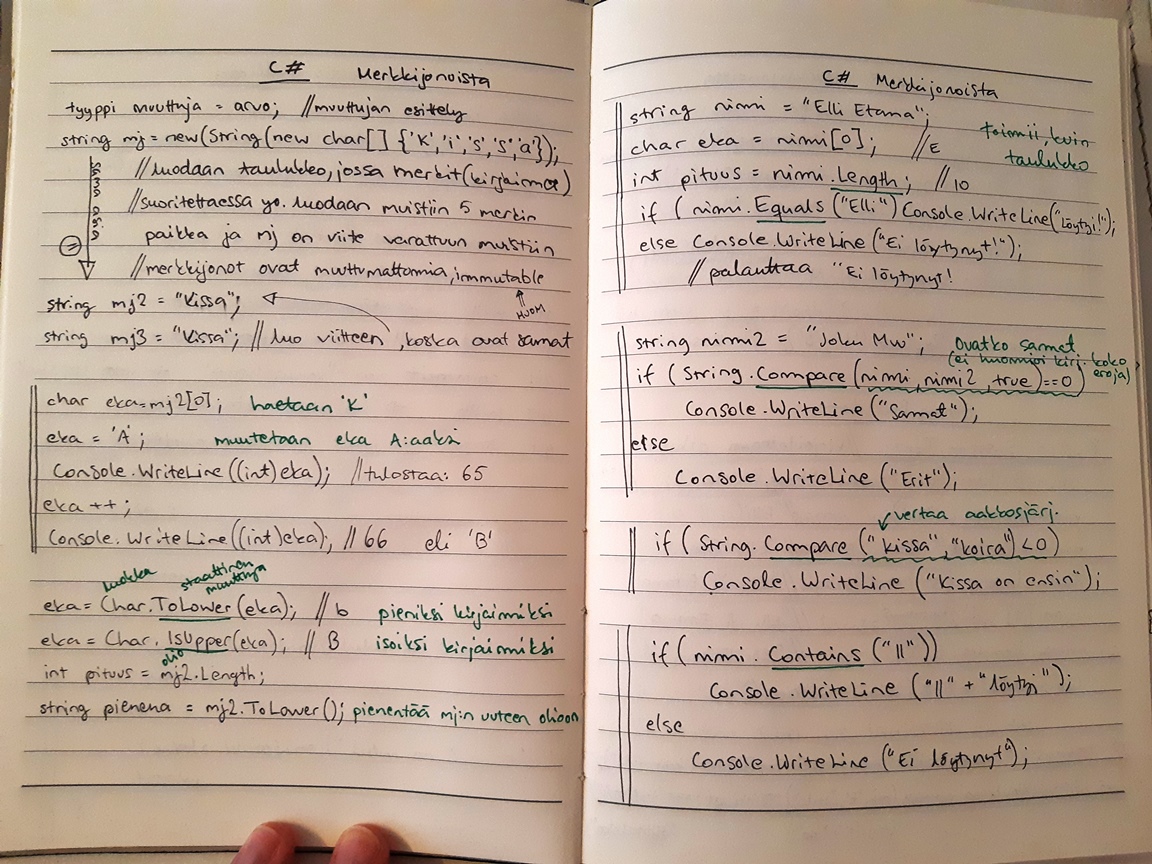 C# Merkkijonoista
tyyppi muuttuja = arvo; //muuttujan esittely
string mj = new(String(new char[] {'K','i','s','s','a'});
//luodaan taulukko, jossa merkit(kirjaimet)
//suoritettaessa yo. luodaan muistiin 5 merkin
paikka ja mj on viite varattuun muistiin
//merkkijonot ovat muuttumattomia, immutable
sama asia
=
HUOM
string mj2 = "Kissa";
string mj3 = "Kissa"; // luo viitteen, koska ovat samat
char eka=mj2[0]; haetaan 'K'
eka = 'A'; muutetaan eka A:aaksi
Console.WriteLine((int)eka); //tulostaa: 65
eka ++;
Console.WriteLine((int)eka); // 66 eli 'B'
luokka staattinen
muuttuja
eka = Char.ToLower(eka); // b pieniksi kirjaimiksi
eka = Char.IsUpper(eka); // B isoiksi kirjaimiksi
olio
int pituus = mj2.Length;
string pienena = mj2.ToLower(); pienentää mj:n uuteen olioon
C# Merkkijonoista
string nimi = "Elli Etana";
char eka = nimi[0]; //E
toimii, kuin
taulukko
int pituus = nimi.Length; //10
if ( nimi.Equals ("Elli") Console.WriteLine("Löytyi!");
else Console.WriteLine("Ei löytynyt!");
// palauttaa "Ei löytynyt!
string nimi2 = "Joku Muu"; Ovatko samat
(ei huomioi kirj. koko
eroja)
if (String.Compare (nimi, nimi2, true)==0)
Console.WriteLine ("Samat");
else
Console.WriteLine ("Erit");
vertaa aakkosjärj.
if ( String.Compare ("kissa","koira") <0)
Console.WriteLine ("Kissa on ensin");
if ( nimi.Contains ("ll"))
Console.WriteLine ("ll" + "löytyi");
else
Console.WriteLine ("Ei löytynyt");